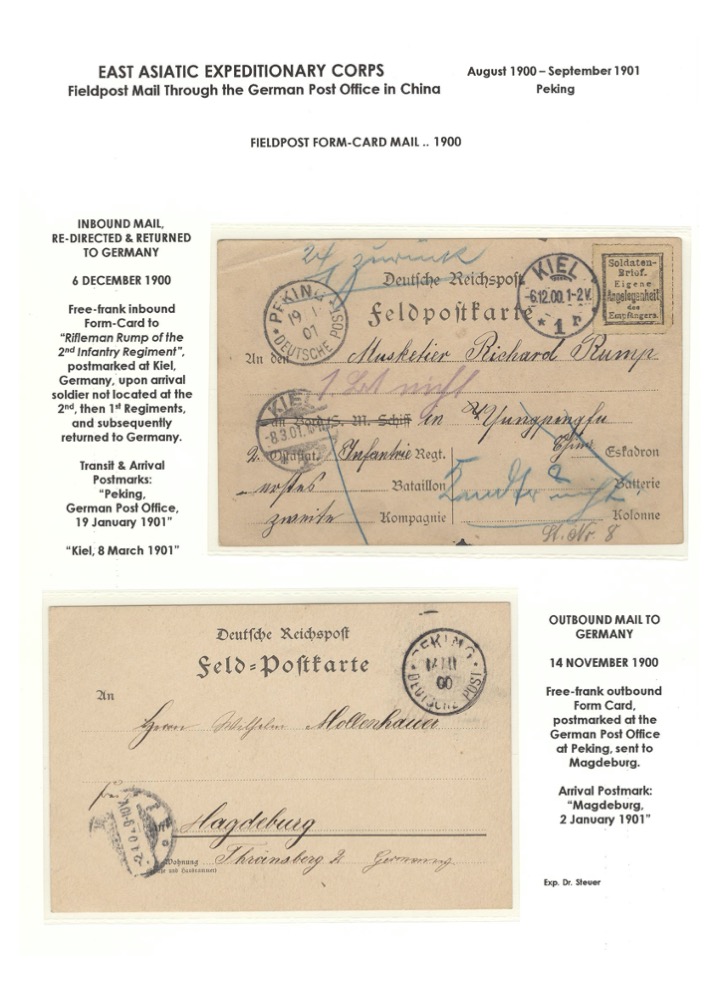 EAST ASIATIC EXPEDITIONARY CORPS
Fieldpost Mail Through the German Post Office in China
August 1900 – September 1901
Peking
FIELDPOST FORM-CARD MAIL .. 1900
INBOUND MAIL,
RE-DIRECTED & RETURNED
TO GERMANY
6 DECEMBER 1900
Free-frank inbound
Form-Card to
"Rifleman Rump of the
2nd Infantry Regiment",
postmarked at Kiel,
Germany, upon arrival
soldier not located at the
2nd, then 1st Regiments,
and subsequently
returned to Germany.
Transit & Arrival
Postmarks:
"Peking,
German Post Office,
19 January 1901"
"Kiel, 8 March 1901"
zurück
Deutsche Reichspost
Feldpostkarte
PEKING
19 1 01
DEUTSCHE POST
KIEL
-6.12.00.1-2V.
* 1 r
Soldaten-
Brief.
Eigene
Angelegenheit
des
Empfängers.
An den Musketier Richard Rump
1. Bat nicht
KIEL
-8.3.01.
an Bord S. M. Schiff in Yungpingfu
China
2. Ostasiat. Infantrie Regt.
Eskadron
erstes Bataillon
Batterie
zweite Kompagnie
Kolonne
St. Nr. 8
Deutsche Reichspost
Feld=Postkarte
PEKING
14 11 00
DEUTSCHE POST
An
Herrn Wilhelm Mollenhauer
Magdeburg
Wohnung
Germany
OUTBOUND MAIL TO
GERMANY
14 NOVEMBER 1900
Free-frank outbound
Form Card,
postmarked at the
German Post Office
at Peking, sent to
Magdeburg.
Arrival Postmark:
"Magdeburg,
2 January 1901"
Exp. Dr. Steuer